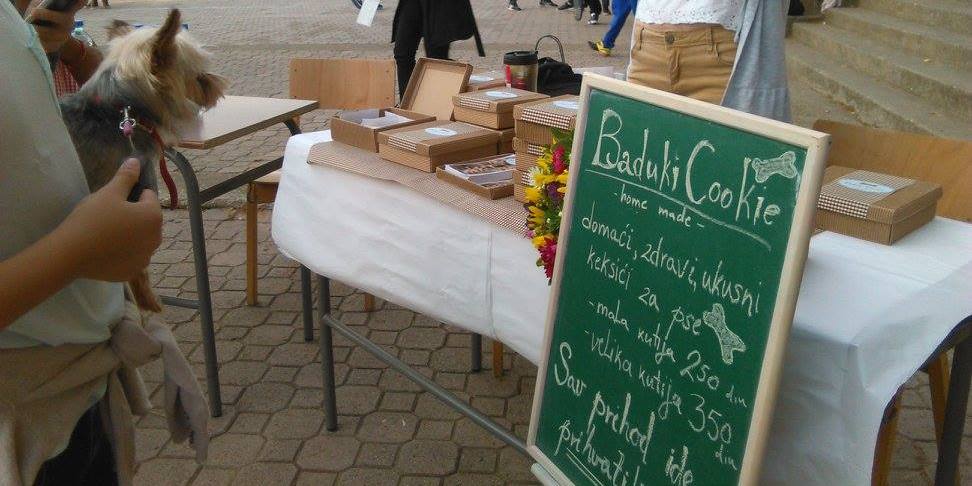 Baduki Cookie
- home made -
domaći, zdravi, ukusni
keksići za pse
- mala kutija 250 din
- velika kutija 350 din
Sav prihod ide